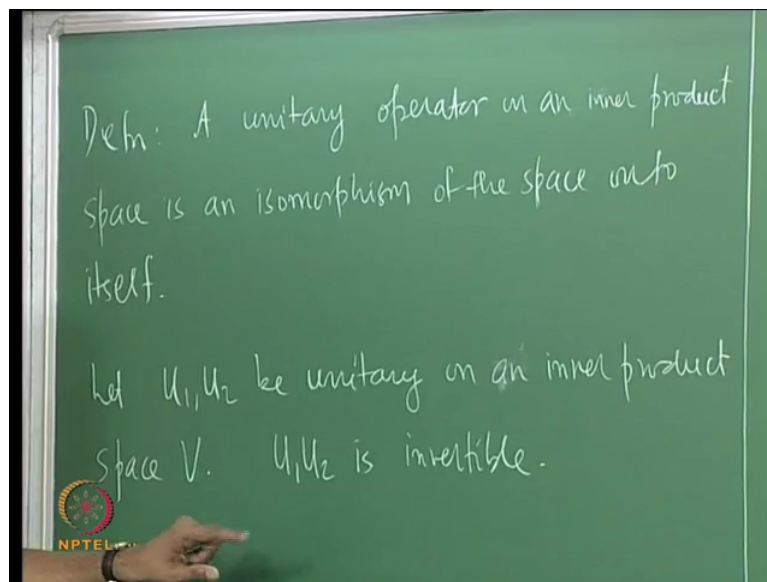 Defn: A unitary operator on an inner product
space is an isomorphism of the space onto
itself.
Let U1, U2 be unitary on an inner product
space V. U1U2 is invertible.
NPTEL